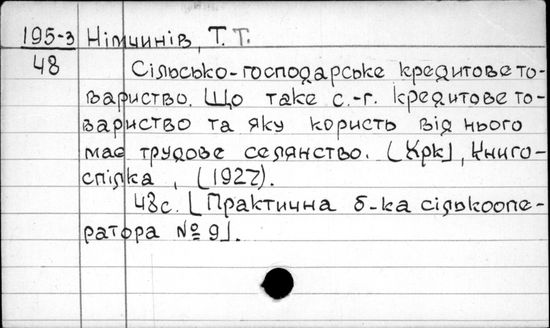 195-3 Німчинів, Т. Т.
48 Сільсько-господарське кредитове то-
вариство. Що таке с.-г. кредитове то-
вариство та яку користь від нього
має трудове селянство. [Хрк], Книго-
спілка, [1927].
48с. [Практична б-ка сількоопе-
ратора № 9].